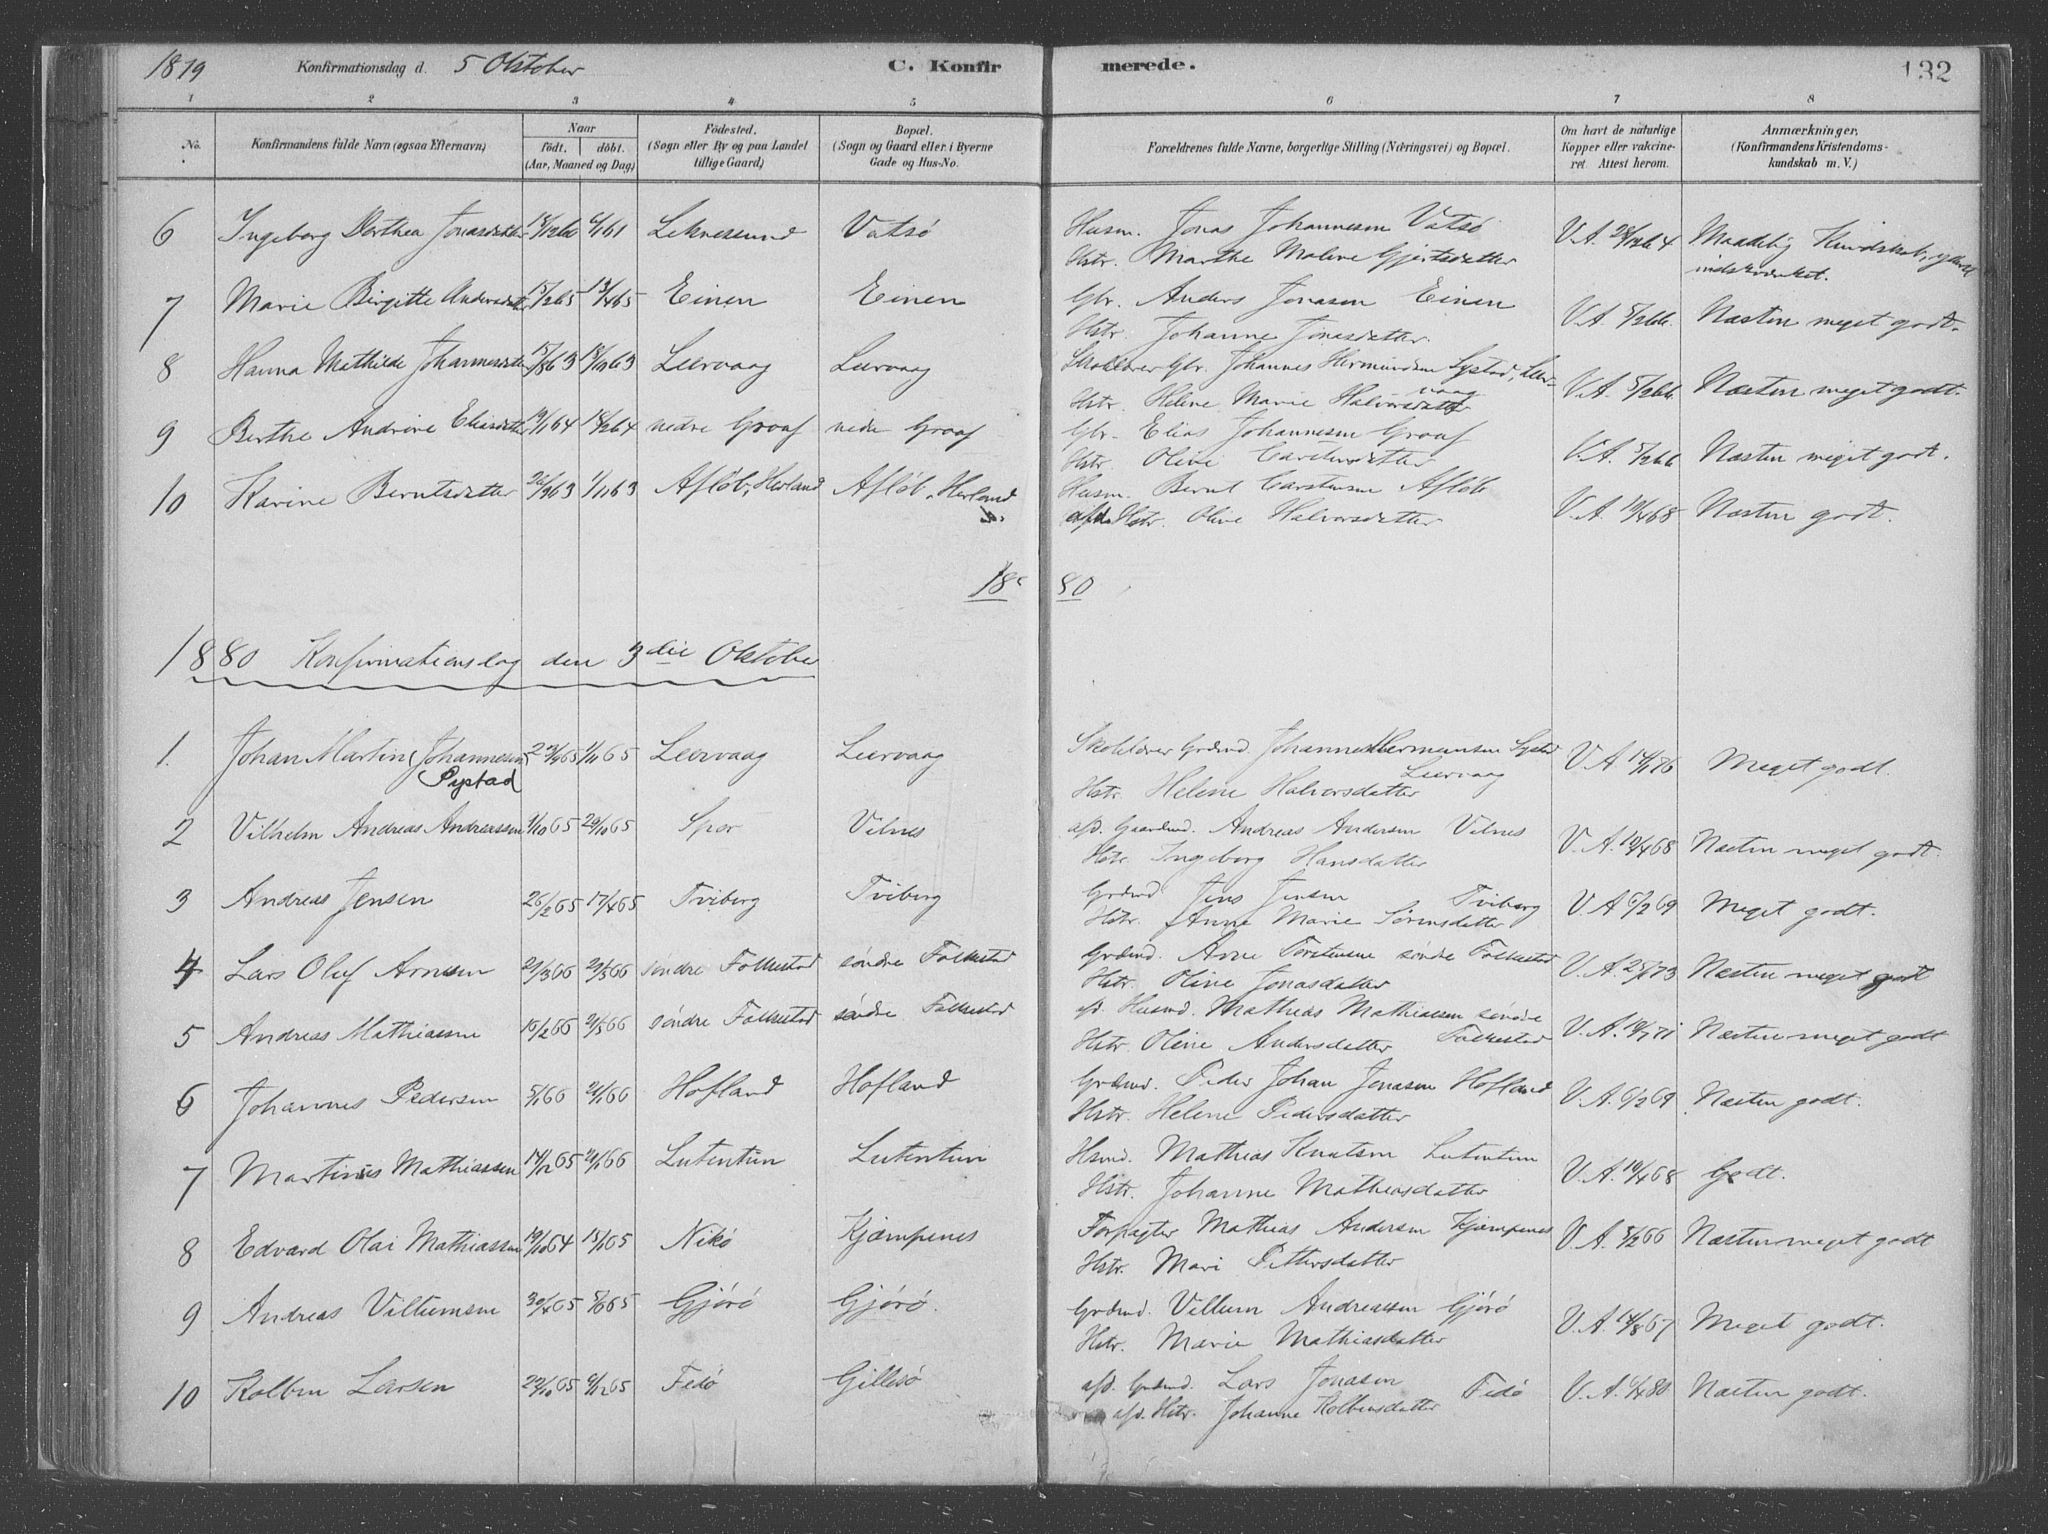 1879 Konfirmationsdag d. 5 Oktober C. Konfirmerede. 132
1 2 3 4 5 6 7 8
No. Konfirmandens fulde Navn (ogsaa Efternavn) Naar födt. döbt. (Aar, Maaned og Dag) Födested. (Sogn eller By og paa Landet tillige Gaard) Bopæl. (Sogn og Gaard eller i Byerne Gade og Hus-No. Forældrenes fulde Navne, borgerlige Stilling (Næringsvei) og Bopæl. Om havt de naturlige Kopper eller vakcineret Attest herom. Anmærkninger. (Konfirmandens Kristendomskundskab m. V.)
6 Ingeborg Dorthea Jonasdatter Leknessund Vatsö Husm. Jonas Johannesen Vatsö V.A. Maadelig Kundskab,
Hstr. Marthe Malene Gjertsdatter indskrænket.
7 Marie Birgitte Andersdatter 15/2 65 13/4 65 Einen Einen Gbr. Anders Jonasen Einen V.A. 5/2 66. Næsten meget godt.
Hstr. Johanne Jonasdatter.
8 Hanna Mathilde Johannesdatter 15/8 63 18/10 63 Leervaag Leervaag Skolelærer Gbr. Johannes Hermundsen Systad, Leer- V.A. 5/2 66 Næsten meget godt.
Hstr. Helene Marie Halvorsdatter vaag
9 Berthe Andrine Eliasdatter 19/1 64 14/2 64 nedre Graaf nedre Graaf Gbr. Elias Johannesen Graaf V.A. 5/2 66 Næsten meget godt.
Hstr. Oline Carstensdatter
10 Karine Berntsdatter 26/9 63 1/11 63 Afløb, Herland Afløb, Herland Husm. Bernt Carstensen Afløb V.A. 19/4 68 Næsten godt.
afd. Hstr. Oline Halvorsdatter
1880
1880 Konfirmationsdag den 3die Oktober
1. Johan Martin Johannesen 23/9 65 1/11 65 Leervaag Leervaag Skolelærer Grdmd. Johannes Hermansen Systad V.A. 14/1 76 Meget godt.
Systad Leervaag
Hstr. Helene Halvorsdatter
2 Vilhelm Andreas Andreassen 1/10 65 29/10 65 Spor Vilnes afd. Gaardmd. Andreas Andersen Vilnes V.A. 19/4 68 Næsten meget godt.
Hstr. Ingeborg Hansdatter
3 Andreas Jensen 26/2 65 17/4 65 Tviberg Tviberg Grdmd Jens Jensen Tviberg V.A 6/2 69 Meget godt.
Hstr. Anne Marie Sörensdatter
4 Lars Oluf Arnesen 21/3 66 söndre Folkestad söndre Folkestad Grdmd. Arne Torstensen söndre Folkestad V.A. 25/1 73 Næsten meget godt
Hstr. Oline Jonasdatter
5 Andreas Mathiassen 16/2 66 21/5 66 söndre Folkestad søndre Folkestad afd. Husmd. Mathias Mathiassen söndre V.A. Næsten meget godt
Hstr. Oline Andersdatter Folkestad
6 Johannes Pedersen 5/1 66 21/1 66 Hofland Hofland Grdmd. Peder Johan Jonasen Hofland V.A. 6/2 69 Næsten godt.
Hstr. Helene Pedersdatter
7 Martinus Mathiassen 14/12 65 21/1 66 Lutentun Lutentun Hsmd. Mathias Knutsen Lutentun V.A. 19/4 68 Godt.
Hstr. Johanne Mathiasdatter
8 Edvard Olai Mathiassen 19/10 64 15/1 65 Nikö Kjæmpenes Forpagter Mathias Andersen Kjæmpenes V.A. 5/2 66 Næsten meget godt
Hstr. Mari Pettersdatter
9 Andreas Villumsen 30/4 65 5/6 65 Gjörö Gjörö. Grdmd. Villum Andreassen Gjörö V.A. 14/8 67 Meget godt.
Hstr. Marie Mathiasdatter
10 Kolben Larsen 22/10 65 6/12 65 Fedö Gillesö afd. Grdmd. Lars Jonasen Fedö V.A. 6/4 80 Næsten godt.
afd. Hstr. Johanne Kolbensdatter